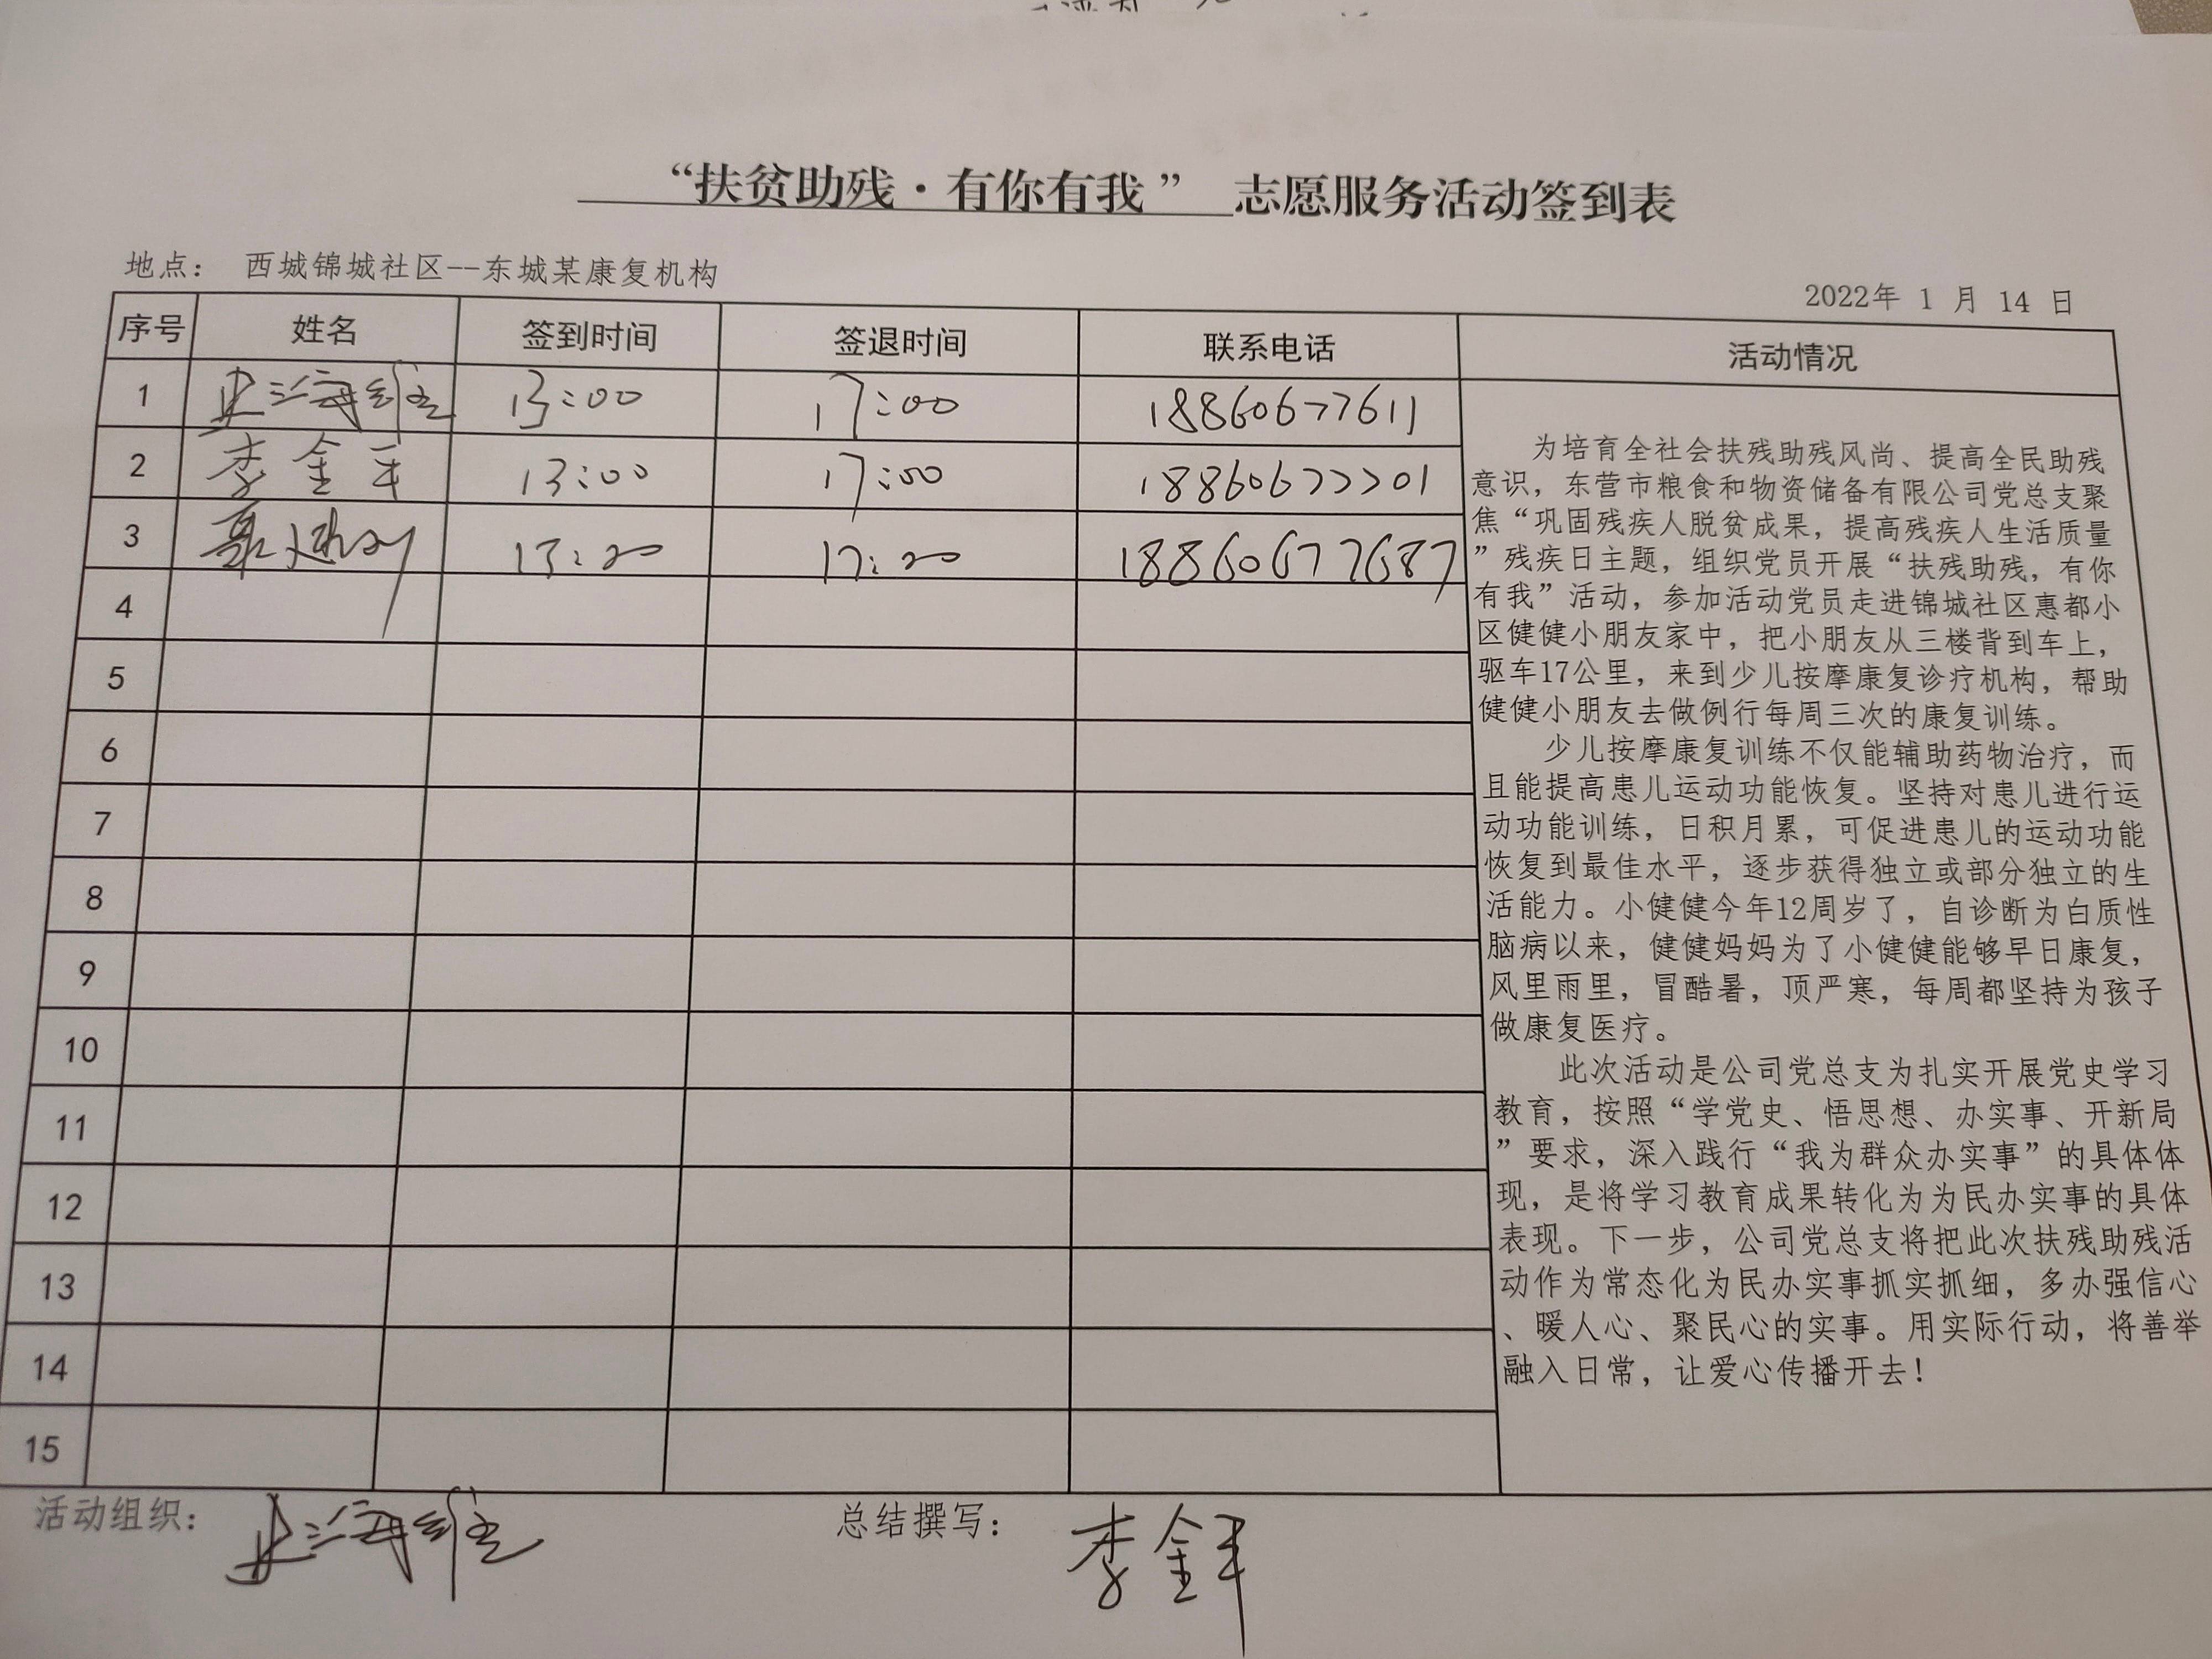 “扶贫助残·有你有我” 志愿服务活动签到表
地点： 西城锦城社区--东城某康复机构
2022年 1 月 14 日
序号 姓名 签到时间 签退时间 联系电话 活动情况
1 13:00 17:00 18860677611
2 13:00 17:00 18860677701
3 13:20 17:20 18860677687
4
5
6
7
8
9
10
11
12
13
14
15
为培育全社会扶残助残风尚、提高全民助残
意识，东营市粮食和物资储备有限公司党总支聚
焦“巩固残疾人脱贫成果，提高残疾人生活质量
”残疾日主题，组织党员开展“扶残助残，有你
有我”活动，参加活动党员走进锦城社区惠都小
区健健小朋友家中，把小朋友从三楼背到车上，
驱车17公里，来到少儿按摩康复诊疗机构，帮助
健健小朋友去做例行每周三次的康复训练。
少儿按摩康复训练不仅能辅助药物治疗，而
且能提高患儿运动功能恢复。坚持对患儿进行运
动功能训练，日积月累，可促进患儿的运动功能
恢复到最佳水平，逐步获得独立或部分独立的生
活能力。小健健今年12周岁了，自诊断为白质性
脑病以来，健健妈妈为了小健健能够早日康复，
风里雨里，冒酷暑，顶严寒，每周都坚持为孩子
做康复医疗。
此次活动是公司党总支为扎实开展党史学习
教育，按照“学党史、悟思想、办实事、开新局
”要求，深入践行“我为群众办实事”的具体体
现，是将学习教育成果转化为为民办实事的具体
表现。下一步，公司党总支将把此次扶残助残活
动作为常态化为民办实事抓实抓细，多办强信心
、暖人心、聚民心的实事。用实际行动，将善举
融入日常，让爱心传播开去！
活动组织： 总结撰写：